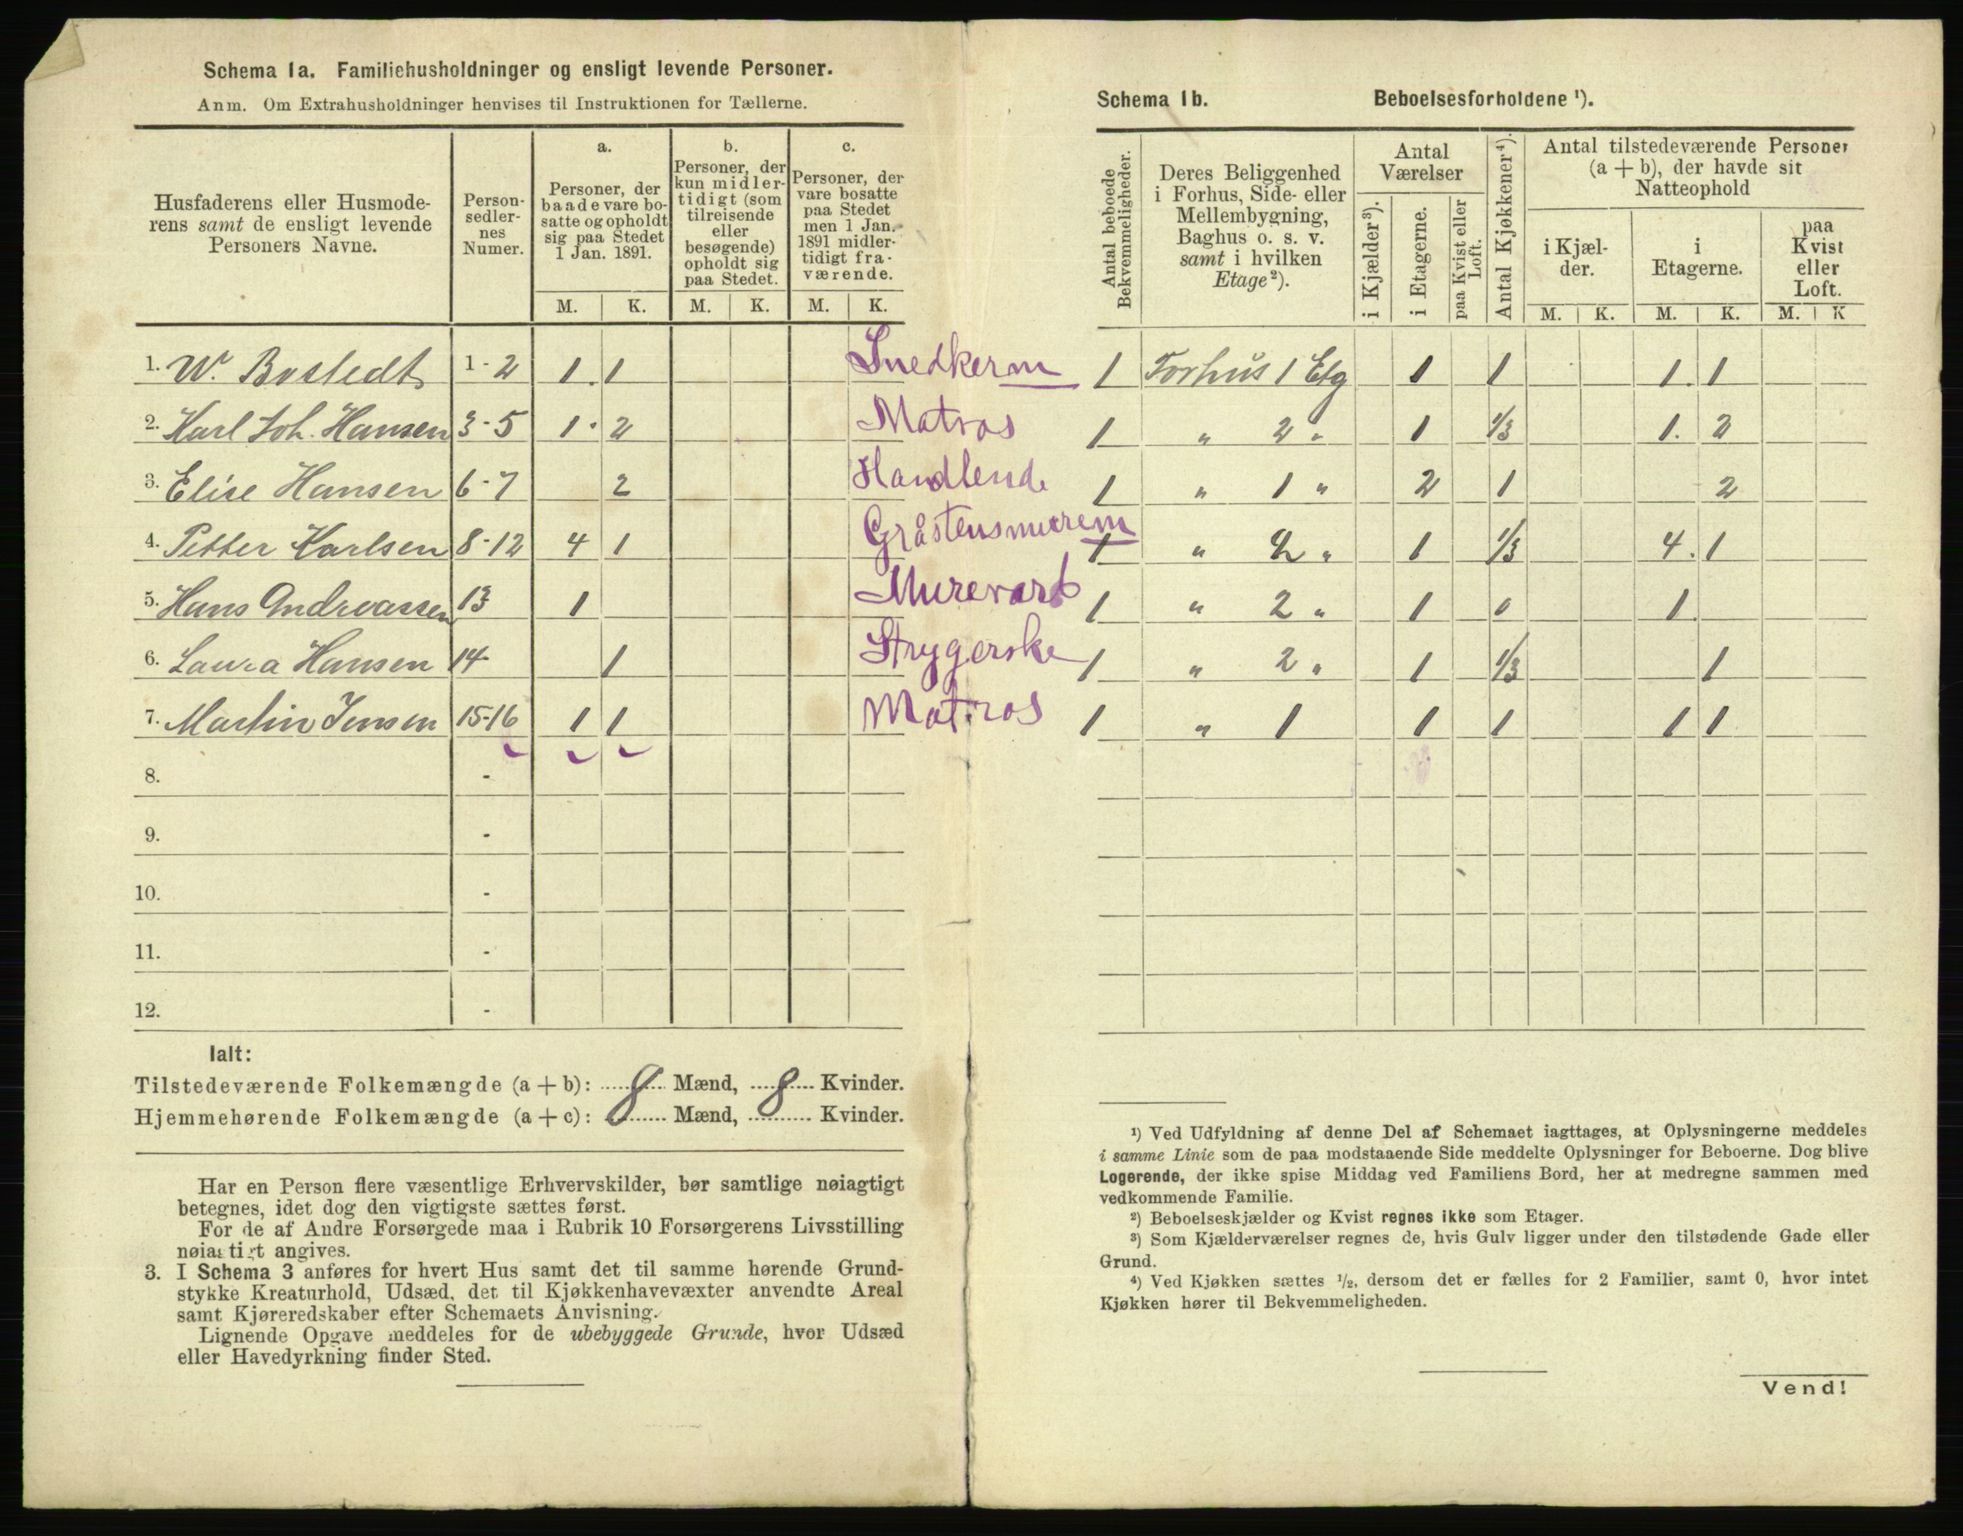 Schema 1a. Familiehusholdninger og ensligt levende Personer.
Anm. Om Extrahusholdninger henvises til Instruktionen for Tællerne.
Husfaderens eller Husmoderens samt de ensligt levende Personers Navne. | Personsedlernes Numer. | a. Personer, der baade vare bosatte og opholdt sig paa Stedet 1 Jan. 1891. | b. Personer, der kun midlertidigt (som tilreisende eller besøgende) opholdt sig paa Stedet. | c. Personer, der vare bosatte paa Stedet men 1 Jan. 1891 midlertidigt fraværende.
M. | K. | M. | K. | M. | K.
1. W. Bostedt | 1-2 | 1. | 1 | Snedkerm
2. Karl Joh. Hansen | 3-5 | 1. | 2 | Matros
3. Elise Hansen | 6-7 | 2 | Handlende
4. Petter Karlsen | 8-12 | 4 | 1 | Gråstensmurerm
5. Hans Andreassen | 13 | 1 | Murerarb
6. Laura Hansen | 14 - | 1 | Strygerske
7. Martin Jensen | 15-16 | 1 | 1 | Matros
8. -
9. -
10. -
11. -
12. -
Ialt:
Tilstedeværende Folkemængde (a + b): 8 Mænd, 8 Kvinder.
Hjemmehørende Folkemængde (a + c): Mænd, Kvinder.
Har en Person flere væsentlige Erhvervskilder, bør samtlige nøiagtigt
betegnes, idet dog den vigtigste sættes først.
For de af Andre Forsørgede maa i Rubrik 10 Forsørgerens Livsstilling
nøiagtigt angives.
3. I Schema 3 anføres for hvert Hus samt det til samme hørende Grund-
stykke Kreaturhold, Udsæd, det til Kjøkkenhavevæxter anvendte Areal
samt Kjøreredskaber efter Schemaets Anvisning.
Lignende Opgave meddeles for de ubebyggede Grunde, hvor Udsæd
eller Havedyrkning finder Sted.
Schema 1b. Beboelsesforholdene ¹).
Antal beboede Bekvemmeligheder. | Deres Beliggenhed i Forhus, Side- eller Mellembygning, Baghus o. s. v. samt i hvilken Etage²). | Antal Værelser | i Kjælder³). | i Etagerne. | paa Kvist eller Loft. | Antal Kjøkkener⁴). | Antal tilstedeværende Personer (a + b), der havde sit Natteophold
i Kjælder. | i Etagerne. | paa Kvist eller Loft.
M. | K. | M. | K. | M. | K
1 | Forhus 1 Etg | 1 | 1 | 1. | 1
1 | „ 2 „ | 1 | 1/3 | 1. | 2
1 | „ 1 „ | 2 | 1 | 2
1 | „ 2 „ | 1 | 1/3 | 4. | 1
1 | „ 2 „ | 1 | 0 | 1.
1 | „ 2 „ | 1 | 1/3 | 1
1 | „ 1 | 1 | 1 | 1 | 1
¹) Ved Udfyldning af denne Del af Schemaet iagttages, at Oplysningerne meddeles
i samme Linie som de paa modstaaende Side meddelte Oplysninger for Beboerne. Dog blive
Logerende, der ikke spise Middag ved Familiens Bord, her at medregne sammen med
vedkommende Familie.
²) Beboelseskjælder og Kvist regnes ikke som Etager.
³) Som Kjælderværelser regnes de, hvis Gulv ligger under den tilstødende Gade eller
Grund.
⁴) Ved Kjøkken sættes ½, dersom det er fælles for 2 Familier, samt 0, hvor intet
Kjøkken hører til Bekvemmeligheden.
Vend!